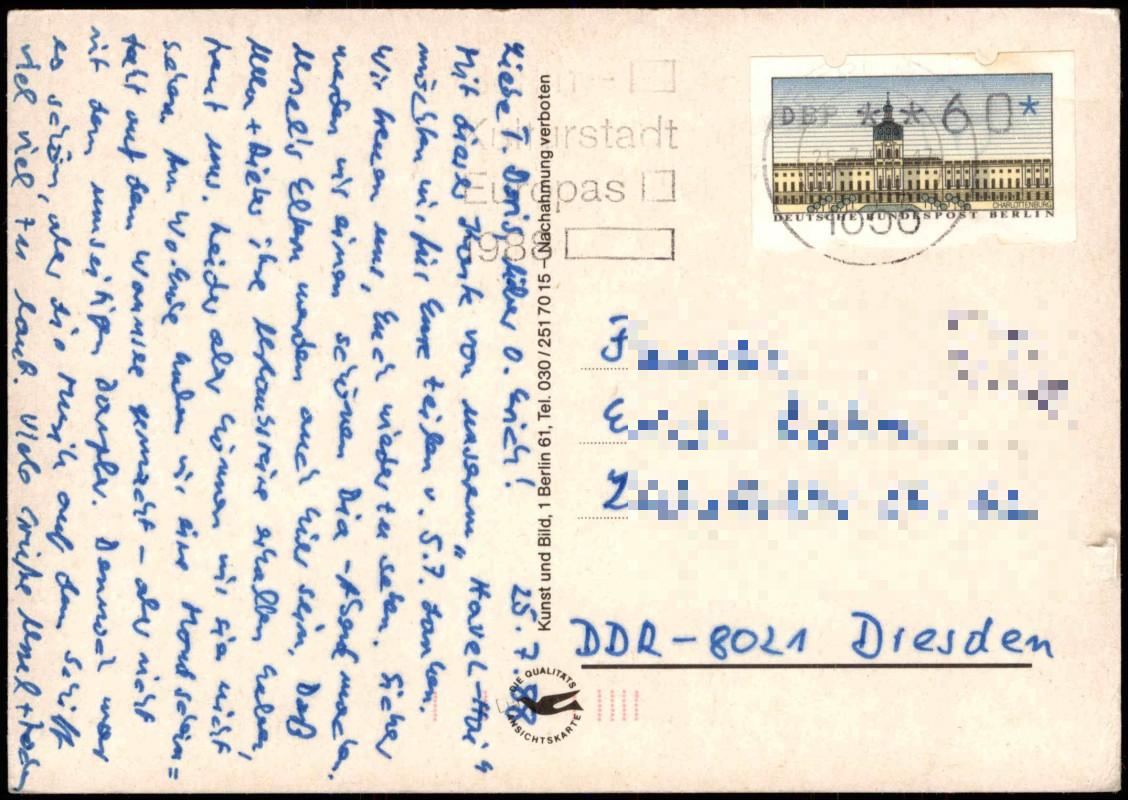 Liebe T. Doris, lieber O. Erich! 25.7.88
Mit dieser Karte von unserem „Havel-Hai“
möchten wir für Eure Zeilen v. 5.7. danken.
Wir freuen uns, Euch wiederzusehen. Sicher
werden wir einen schönen Dia-Abend machen.
Ursel's Eltern werden auch hier sein. Daß
Ulla + Dieter ihre erhalten haben,
freut uns. Leider aber können wir sie nicht
sehen. Am Wo.Ende haben wir eine Mondschein=
fahrt auf dem Wannsee gemacht – aber nicht
mit dem umseitigen Dampfer. Dennoch war
es schön, aber die Musik auf dem Schiff
viel, viel zu laut. Viele Grüße Ursel +
Kunst und Bild, 1 Berlin 61, Tel. 030 / 251 70 15 – Nachahmung verboten
DIE QUALITÄTS
ANSICHTSKARTE
Kulturstadt
Europas
1988
DBP * * 60*
CHARLOTTENBURG
DEUTSCHE BUNDESPOST BERLIN
DDR-8021 Dresden